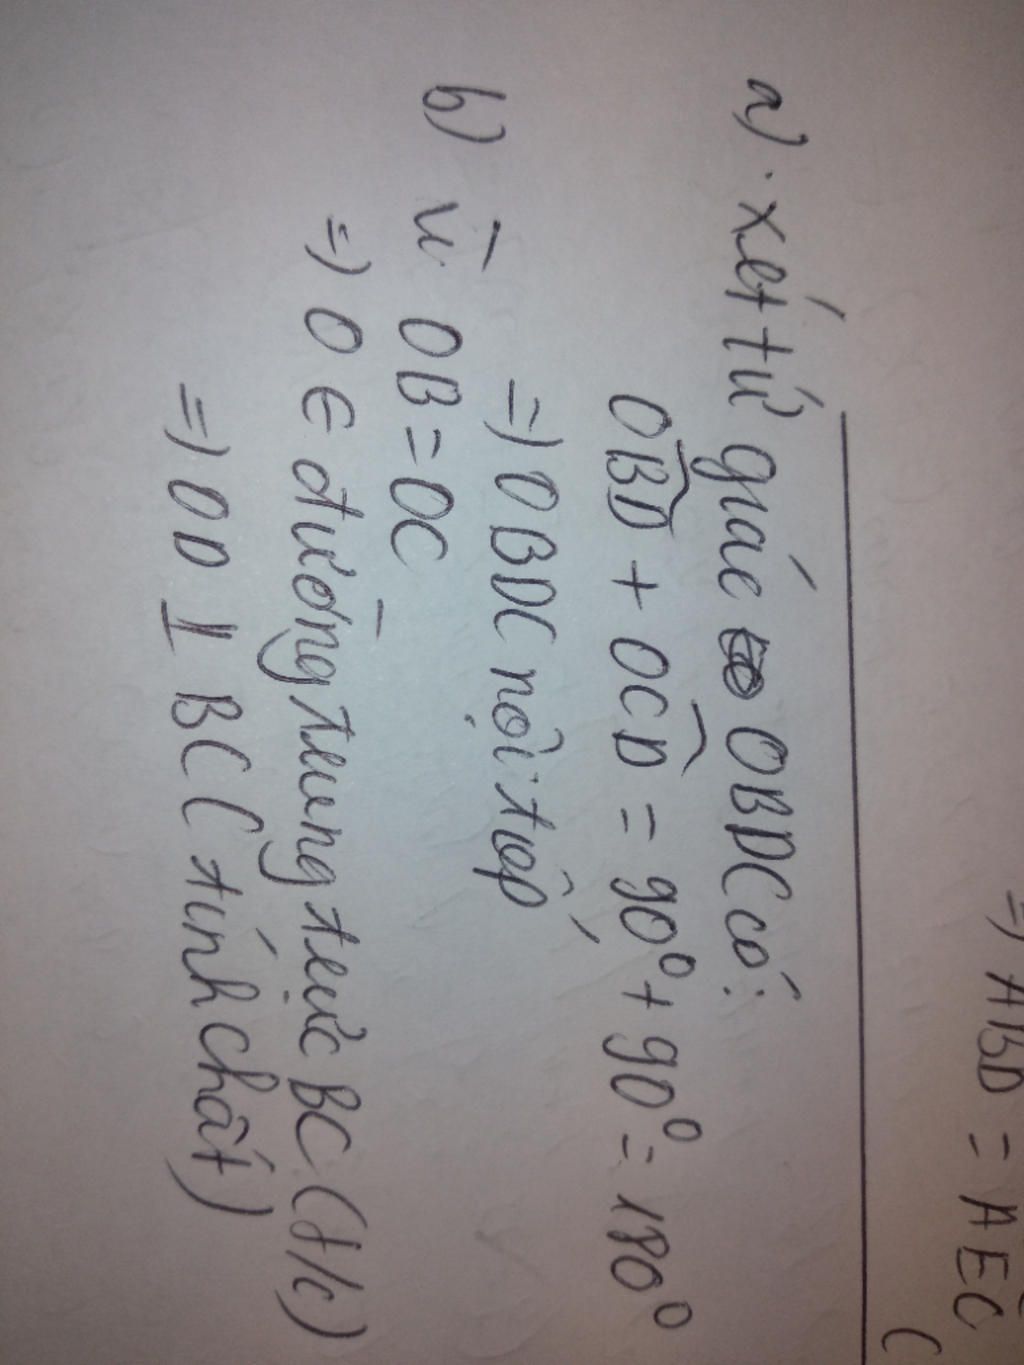 =) ABD = AEC
(
a) . Xét tứ giác OBDC có:
OBD + OCD = 90⁰ + 90⁰ = 180⁰
=) OBDC nội tiếp
b) Vì OB = OC
=) O ∈ đường trung trực BC (t/c)
=) OD ⊥ BC (tính chất)